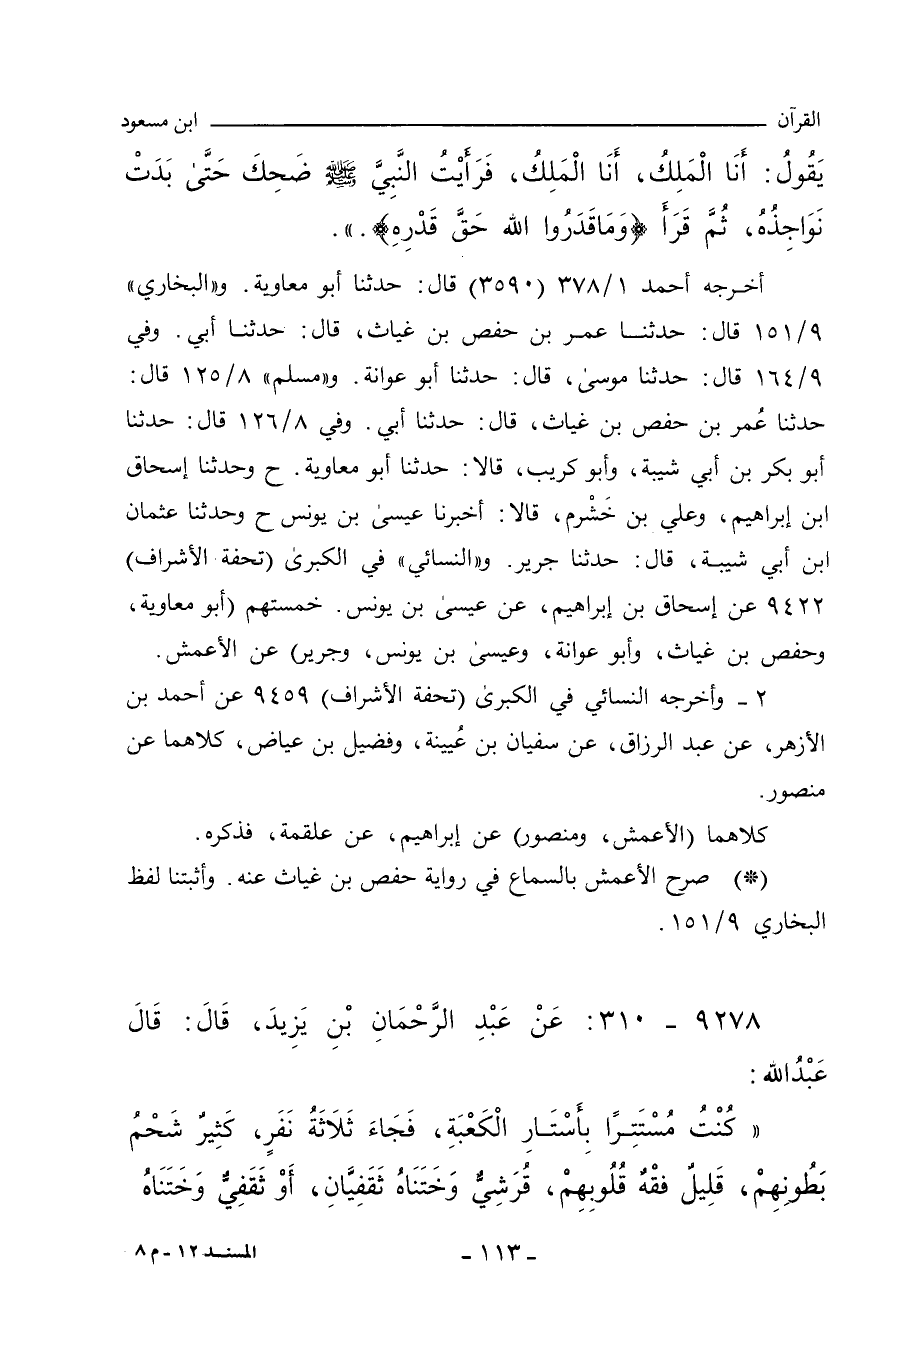 القرآن ــــــــــــــــــــــــــــ ابن مسعود
يَقُولُ: أَنَا الْمَلِكُ، أَنَا الْمَلِكُ، فَرَأَيْتُ النَّبِيَّ ﷺ ضَحِكَ حَتَّىٰ بَدَتْ
نَوَاجِذُهُ، ثُمَّ قَرَأَ ﴿وَمَاقَدَرُوا الله حَقَّ قَدْرِهِ﴾.».
أخرجه أحمد ٣٧٨/١ (٣٥٩٠) قال: حدثنا أبو معاوية. و«البخاري»
١٥١/٩ قال: حدثنا عمر بن حفص بن غياث، قال: حدثنا أبي. وفي
١٦٤/٩ قال: حدثنا موسىٰ، قال: حدثنا أبو عوانة. و«مسلم» ١٢٥/٨ قال:
حدثنا عُمر بن حفص بن غياث، قال: حدثنا أبي. وفي ١٢٦/٨ قال: حدثنا
أبو بكر بن أبي شيبة، وأبو كريب، قالا: حدثنا أبو معاوية. ح وحدثنا إسحاق
ابن إبراهيم، وعلي بن خَشْرم، قالا: أخبرنا عيسىٰ بن يونس ح وحدثنا عثمان
ابن أبي شيبة، قال: حدثنا جرير. و«النسائي» في الكبرىٰ (تحفة الأشراف)
٩٤٢٢ عن إسحاق بن إبراهيم، عن عيسىٰ بن يونس. خمستهم (أبو معاوية،
وحفص بن غياث، وأبو عوانة، وعيسىٰ بن يونس، وجرير) عن الأعمش.
٢ ـ وأخرجه النسائي في الكبرىٰ (تحفة الأشراف) ٩٤٥٩ عن أحمد بن
الأزهر، عن عبد الرزاق، عن سفيان بن عُيينة، وفضيل بن عياض، كلاهما عن
منصور.
كلاهما (الأعمش، ومنصور) عن إبراهيم، عن علقمة، فذكره.
(*) صرح الأعمش بالسماع في رواية حفص بن غياث عنه. وأثبتنا لفظ
البخاري ١٥١/٩.
٩٢٧٨ ـ ٣١٠: عَنْ عَبْدِ الرَّحْمَانِ بْنِ يَزِيدَ، قَالَ: قَالَ
عَبْدُالله:
« كُنْتُ مُسْتَتِرًا بِأَسْتَارِ الْكَعْبَةِ، فَجَاءَ ثَلَاثَةُ نَفَرٍ، كَثِيرٌ شَحْمُ
بَطُونِهِمْ، قَلِيلٌ فِقْهُ قُلُوبِهِمْ، قُرَشِيٌّ وَخَتَنَاهُ ثَقَفِيَّانِ، أَوْ ثَقَفِيٌّ وَخَتَنَاهُ
ـ ١١٣ ـ المسند ١٢ ـ م٨